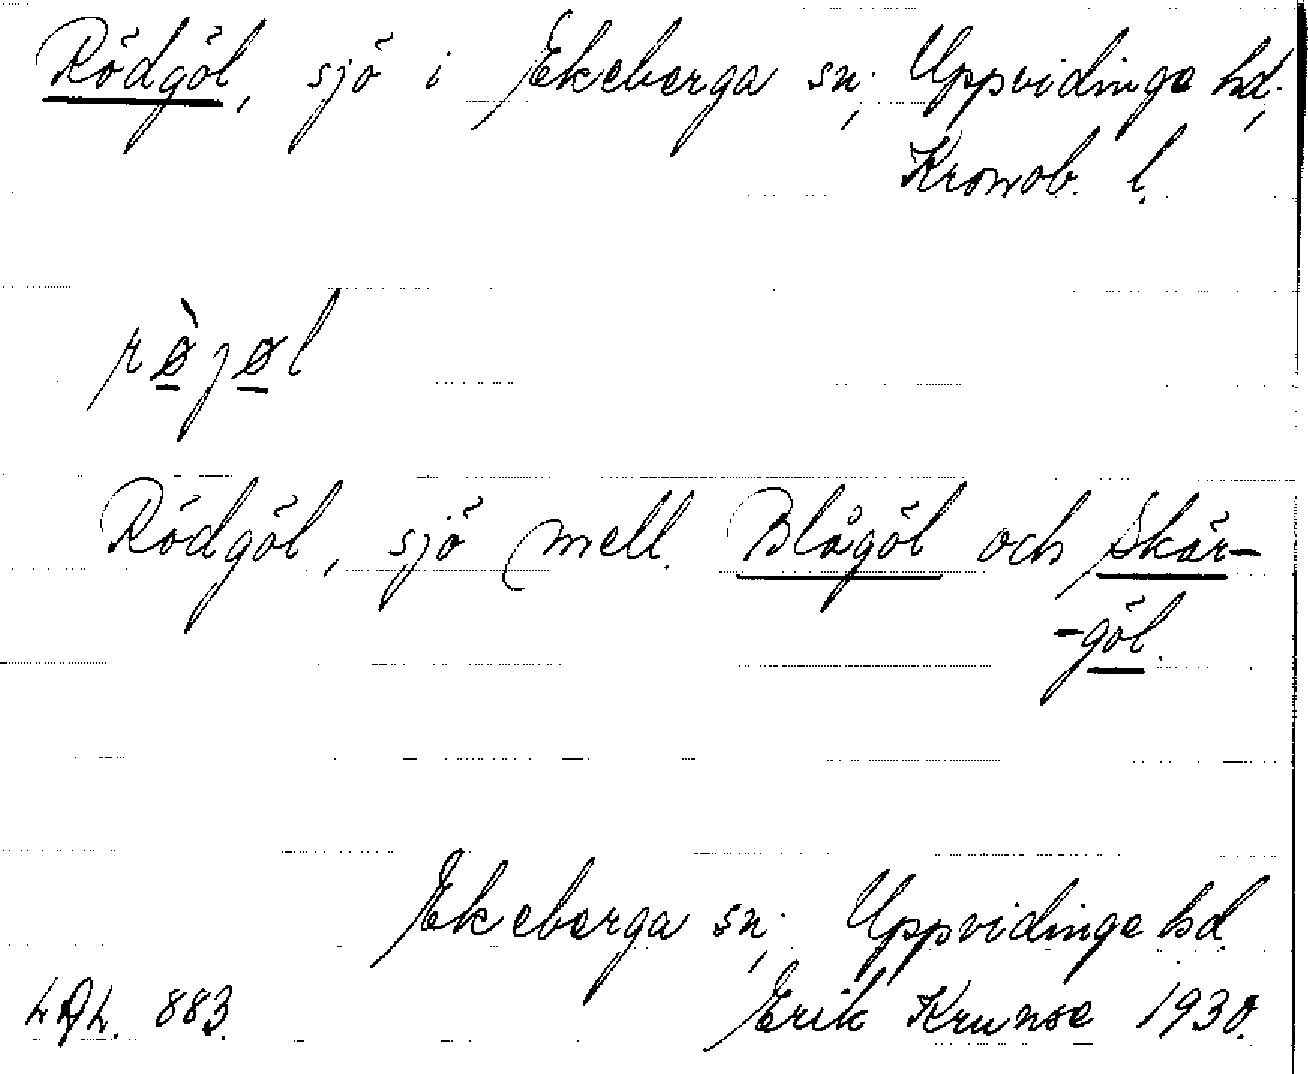 Rödgöl, sjö i Ekeberga sn, Uppvidinge hd,
Kronob. l.
rø̀jøl
Rödgöl, sjö mell. Blågöl och Skär-
-göl.
Ekeberga sn, Uppvidinge hd
883. Erik Krunse 1930.